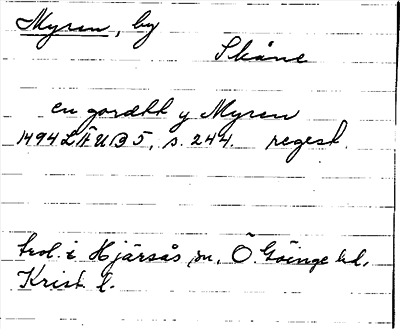 Myren, by
Skåne
en gordtt y Myren
1494 LÄUB 5, s. 244. regest
trol. i Hjärsås sn, Ö. Göinge hd,
Krist. l.